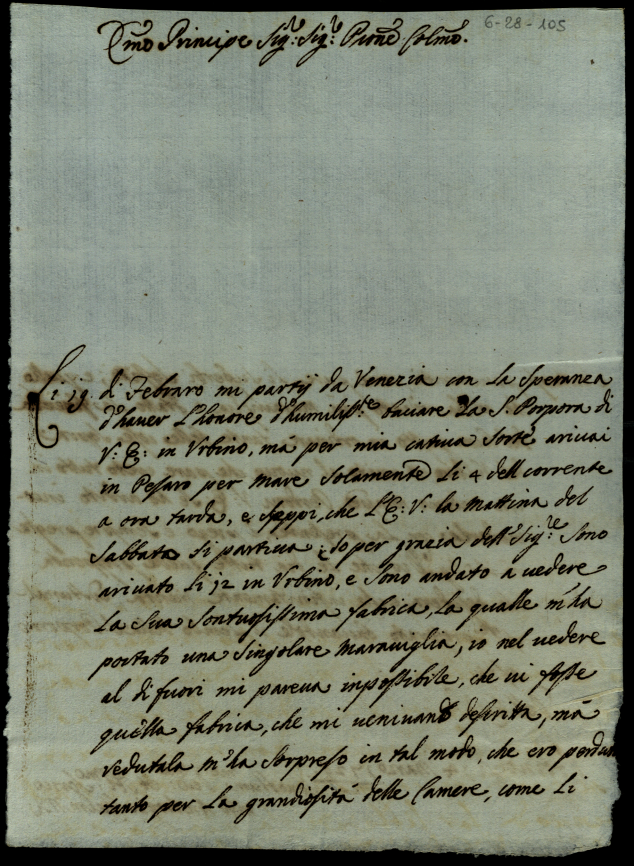 6-28-105
Emo Principe Sig.r Sig.r Prone Colmo.
Li 19 di Febraro mi partij da Venezia con La Speranza
d'hauer L'honore d'humiliss.te baciare La S. Porpora di
V: E: in Vrbino, mà per mia catiua Sorte ariuai
in Pesaro per mare Solamente Li 4 dell corrente
a ora tarda, e Seppi, che L'E: V: la Mattina del
Sabbato Si partiua; Io per grazia dell'Sig.re Sono
ariuato Li 12 in Vrbino, e Sono andato a uedere
La Sua Sontuosissima fabrica, La qualle m'ha
portato una Singolare Marauiglia, io nel uedere
al di fuori mi pareua inpossibile, che ui fosse
quella fabrica, che mi ueniuano descritta, mà
vedutala m'ha Sorpreso in tal modo, che ero
tanto per La grandiosità delle Camere, come Li